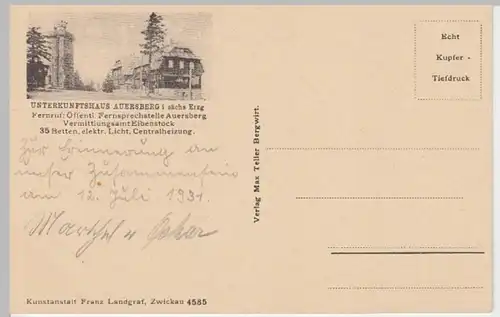 UNTERKUNFTSHAUS AUERSBERG i. sächs Erzg
Fernruf: Öffentl. Fernsprechstelle Auersberg
Vermittlungsamt Eibenstock
35 Betten, elektr. Licht, Centralheizung.
Zur Erinnerung an
unser Zusammensein
am 12. Juli 1931.
Marthel u Oskar
Kunstanstalt Franz Landgraf, Zwickau 4585
Verlag Max Teller Bergwirt.
Echt
Kupfer -
Tiefdruck